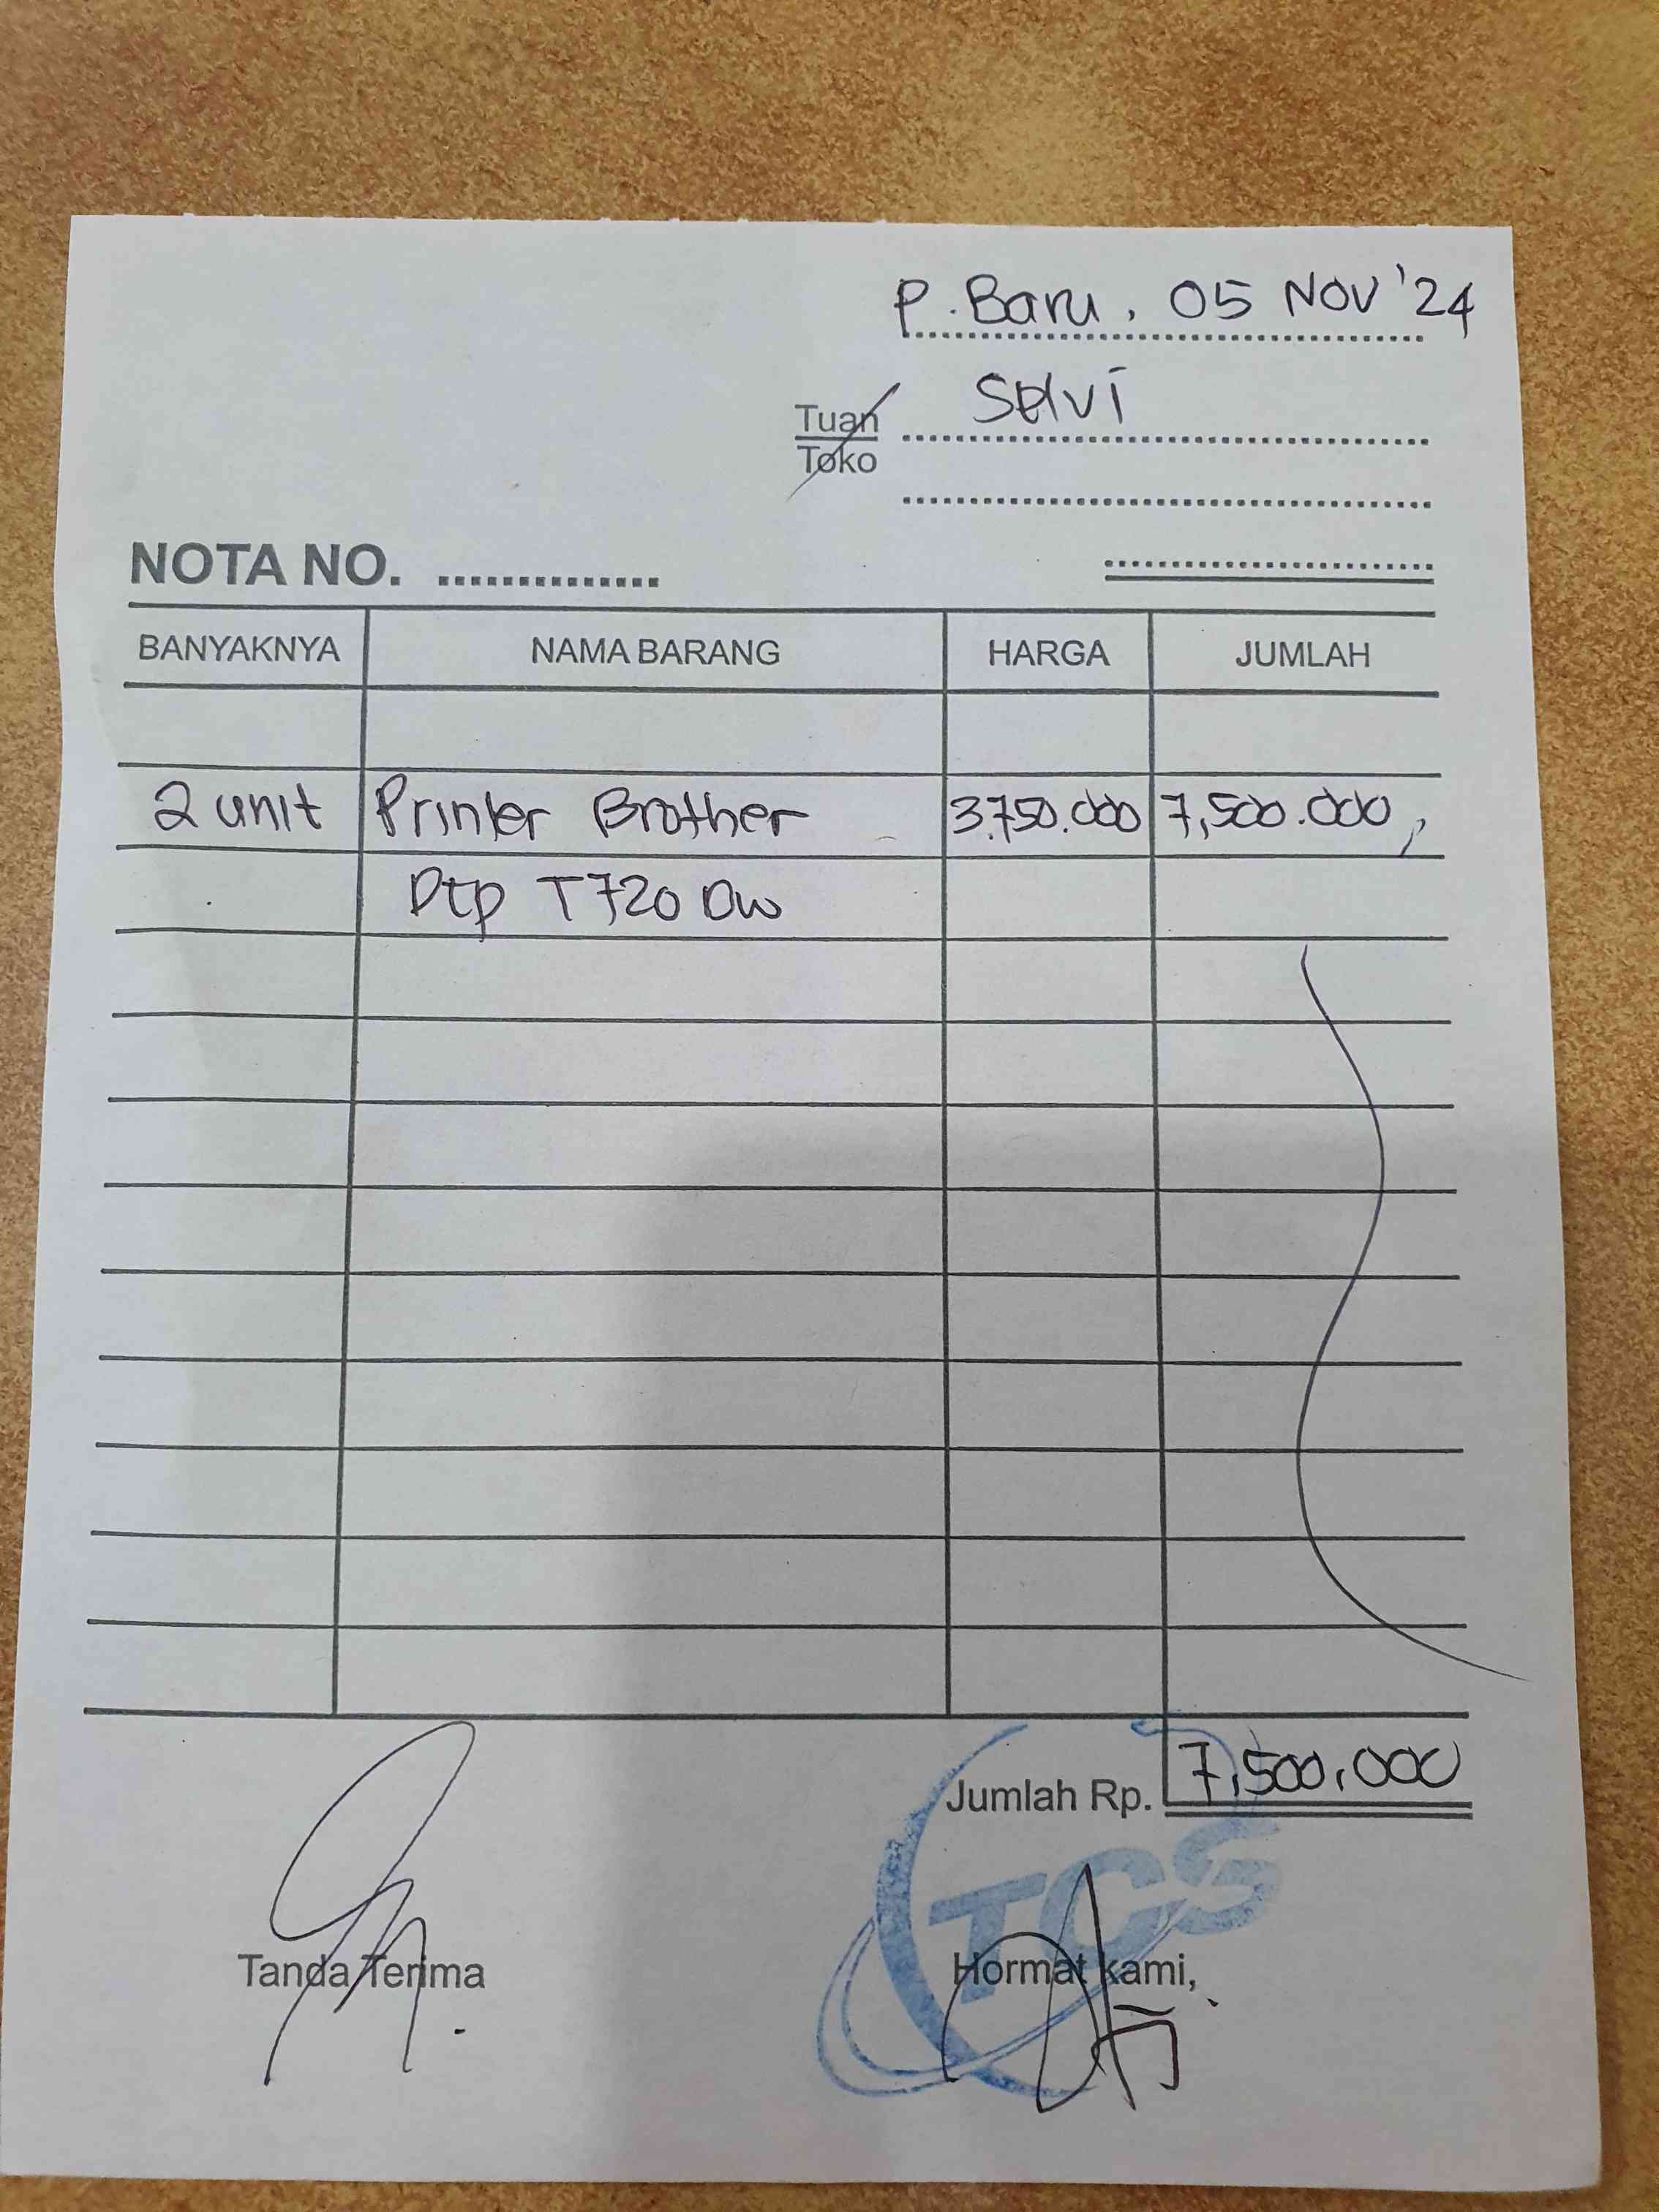 P. Baru, 05 NOV '24
Tuan Selvi
Toko
NOTA NO. ..............
BANYAKNYA NAMA BARANG HARGA JUMLAH
2 unit Printer Brother 3.750.000 7,500.000,
Dcp T720 Dw
Jumlah Rp. 7,500,000
TCS
Tanda Terima Hormat kami,